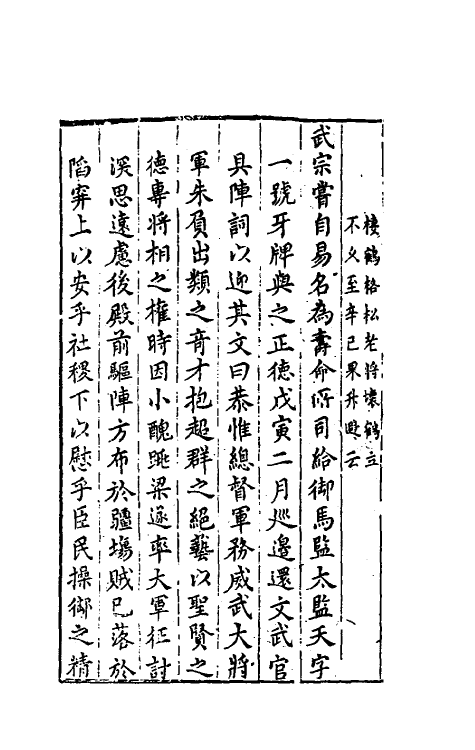 棲鶴格松老將壞鶴立
不久至辛巳果升遐云
武宗嘗自易名為壽命所司給御馬監太監天字
一號牙牌與之正德戊寅二月廵邊還文武官
具陣詞以迎其文曰恭惟總督軍務威武大將
軍朱負出類之竒才抱超群之絕藝以聖賢之
德專將相之權時因小醜跳梁遂率大軍征討
深思遠慮後殿前驅陣方布於疆塲賊已落於
陷穽上以安乎社稷下以慰乎臣民操御之精